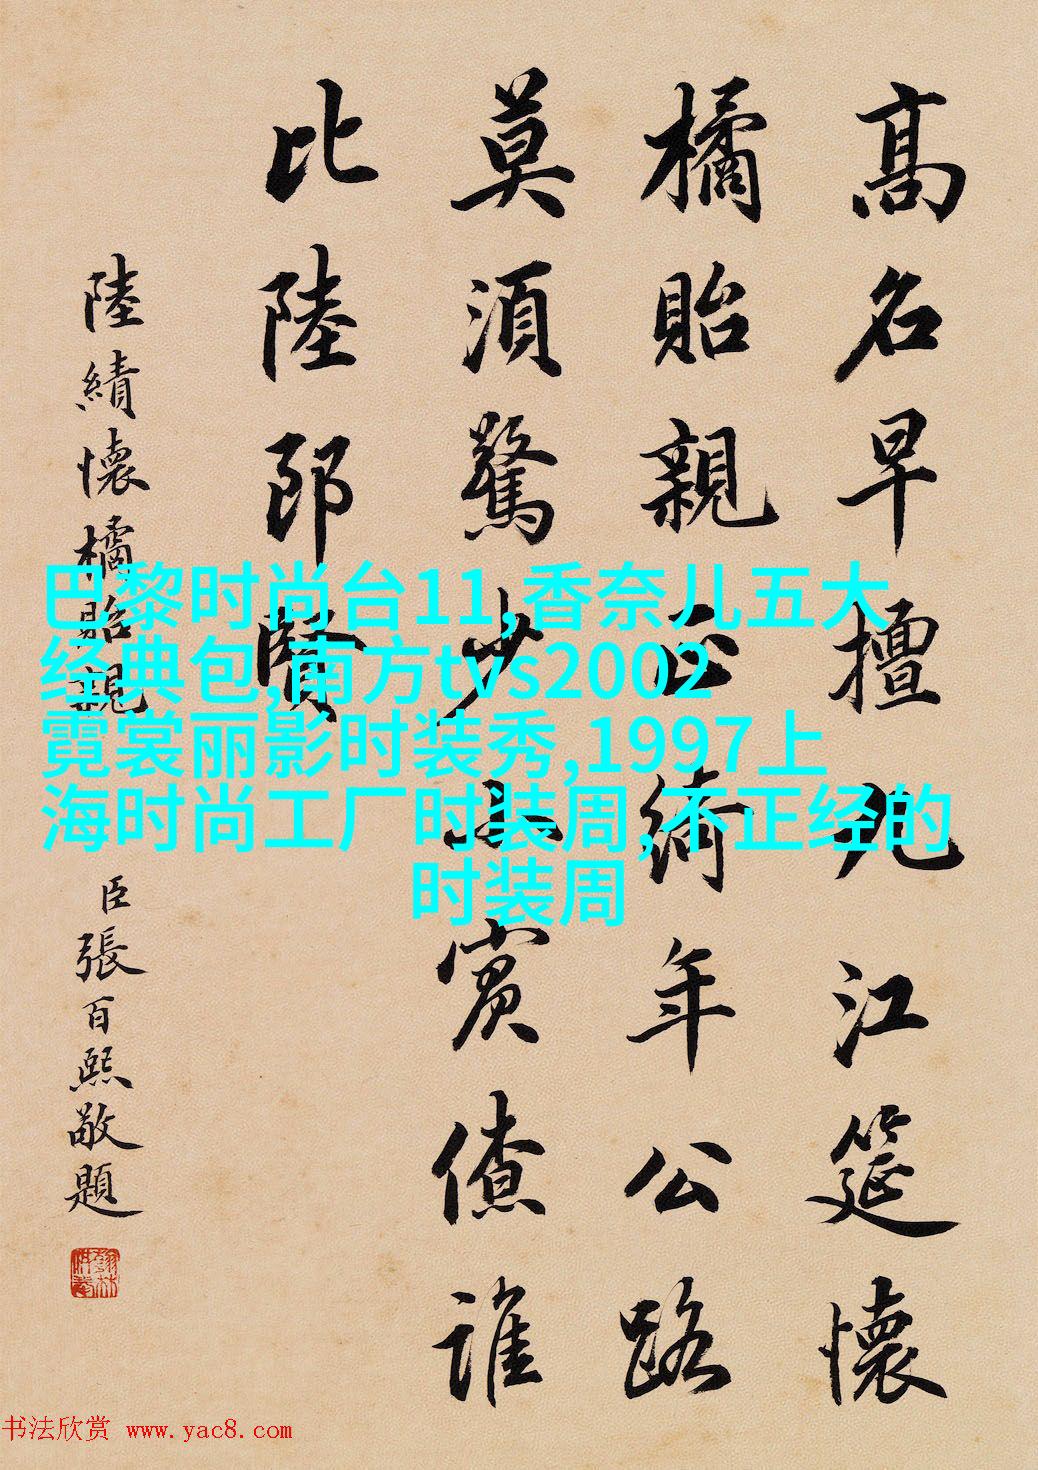 髙名早擅九江筵懷
橘貽親正綺年公路
莫須驚少小賓僚誰
比陸郎賢
陸績懷橘貽親
臣張百熙敬題
巴黎时尚台11,香奈儿五大
经典包,南方tvs2002
霓裳丽影时装秀,1997上
海时尚工厂时装周,不正经的
时装周
书法欣赏 www.yac8.com